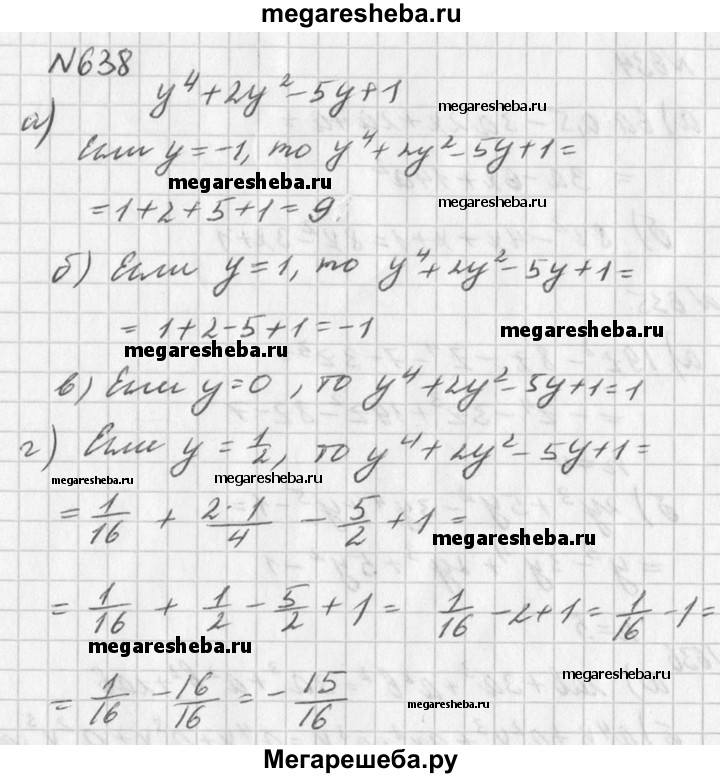 megaresheba.ru
№638
y⁴+2y²-5y+1
megaresheba.ru
а) Если y=-1, то y⁴+2y²-5y+1=
megaresheba.ru
megaresheba.ru
=1+2+5+1=9.
б) Если y=1, то y⁴+2y²-5y+1=
= 1+2-5+1=-1
megaresheba.ru
megaresheba.ru
в) Если y=0, то y⁴+2y²-5y+1=1
г) Если y=1/2, то y⁴+2y²-5y+1=
megaresheba.ru
megaresheba.ru
= 1/16 + 2·1/4 - 5/2 + 1 =
megaresheba.ru
= 1/16 + 1/2 - 5/2 + 1 = 1/16 - 2+1 = 1/16 - 1 =
megaresheba.ru
megaresheba.ru
= 1/16 - 16/16 = - 15/16
Мегарешеба.ру